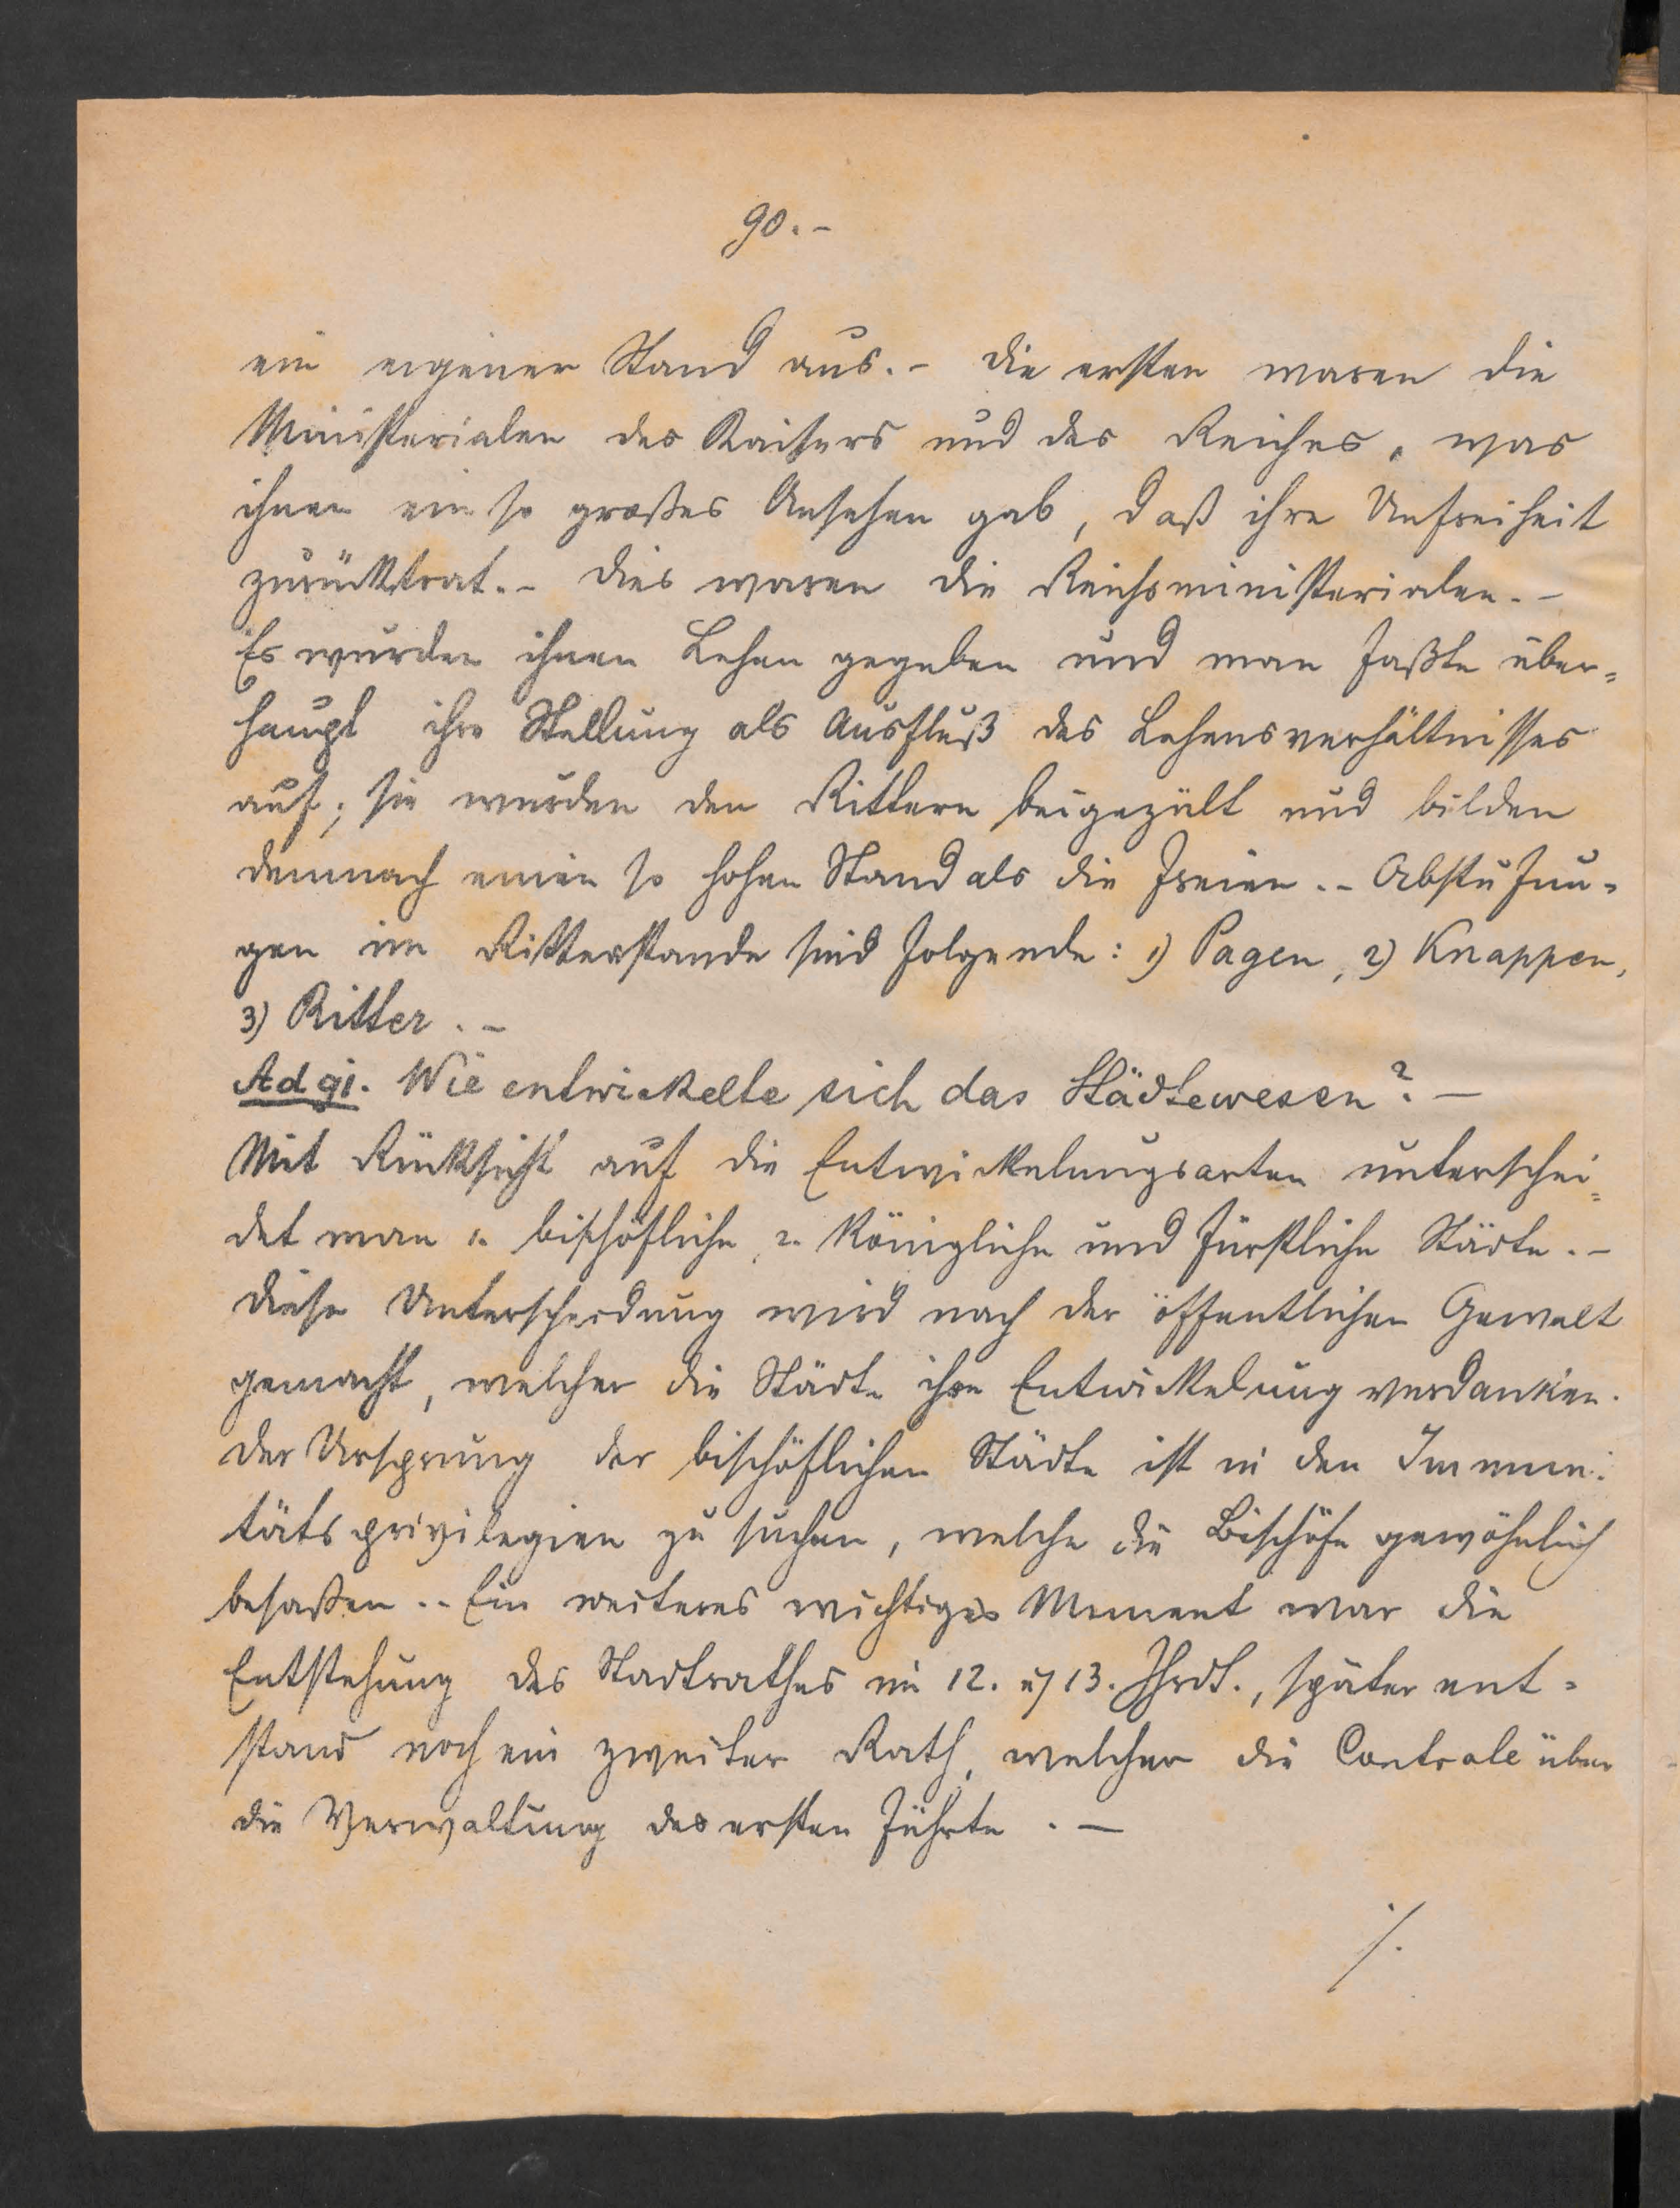 90.-
ein eigener Stand aus.- Die ersten waren die
Ministerialen des Kaisers und des Reiches, was
ihnen ein so großes Ansehen gab, daß ihre Unfreiheit
zurücktrat.- Dies waren die Reichsministerialen.-
Es wurden ihnen Lehen gegeben und man faßte über=
haupt ihre Stellung als Ausfluß des Lehensverhältnisses
auf; sie wurden den Rittern beigezält und bilden
demnach einen so hohen Stand als die Freien.- Abstufun=
gen im Ritterstande sind folgende: 1) Pagen, 2) Knappen,
3) Ritter.-
Ad 91. Wie entwickelte sich das Städtewesen?-
Mit Rücksicht auf die Entwickelungsarten unterschei=
det man 1. bischöfliche, 2. königliche und fürstliche Städte.-
Diese Unterscheidung wird nach der öffentlichen Gewalt
gemacht, welcher die Städte ihre Entwickelung verdanken.
Der Ursprung der bischöflichen Städte ist in den Immuni=
tätsprivilegien zu suchen, welche die Bischöfe gewöhnlich
besaßen.- Ein weiteres wichtiges Moment war die
Entstehung des Stadtrathes im 12. u 13. Jhrdt., später ent=
stand noch ein zweiter Rath, welcher die Controle über
die Verwaltung des ersten führte.-
./.